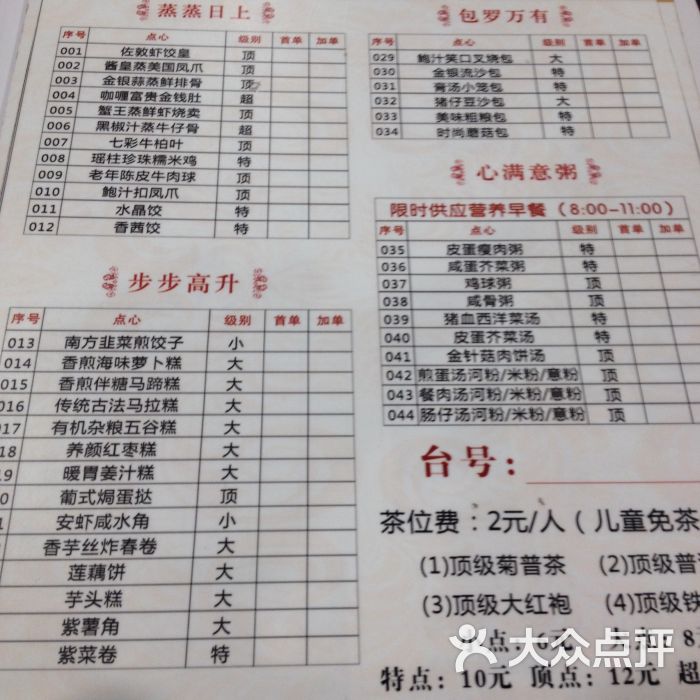 蒸蒸日上
序号 点心 级别 首单 加单
001 佐敦虾饺皇 顶
002 酱皇蒸美国凤爪 顶
003 金银蒜蒸鲜排骨 顶
004 咖喱富贵金钱肚 超
005 蟹王蒸鲜虾烧卖 顶
006 黑椒汁蒸牛仔骨 超
007 七彩牛柏叶 顶
008 瑶柱珍珠糯米鸡 特
009 老年陈皮牛肉球 顶
010 鲍汁扣凤爪 顶
011 水晶饺 特
012 香茜饺 特
步步高升
序号 点心 级别 首单 加单
013 南方韭菜煎饺子 小
014 香煎海味萝卜糕 大
015 香煎伴糖马蹄糕 大
016 传统古法马拉糕 大
017 有机杂粮五谷糕 大
18 养颜红枣糕 大
19 暖胃姜汁糕 大
0 葡式焗蛋挞 顶
1 安虾咸水角 小
香芋丝炸春卷 大
莲藕饼 大
芋头糕 大
紫薯角 大
紫菜卷 特
包罗万有
序号 点心 级别 首单 加单
029 鲍汁笑口叉烧包 大
030 金银流沙包 特
031 膏汤小笼包 特
032 猪仔豆沙包 大
033 美味粗粮包 特
034 时尚蘑菇包 特
心满意粥
限时供应营养早餐（8:00-11:00）
序号 点心 级别 首单 加单
035 皮蛋瘦肉粥 特
036 咸蛋芥菜粥 特
037 鸡球粥 顶
038 咸骨粥 顶
039 猪血西洋菜汤 特
040 皮蛋芥菜汤 特
041 金针菇肉饼汤 顶
042 煎蛋汤河粉/米粉/意粉 顶
043 餐肉汤河粉/米粉/意粉 顶
044 肠仔汤河粉/米粉/意粉 顶
台号：
茶位费：2元/人（儿童免茶
(1)顶级菊普茶 (2)顶级普
(3)顶级大红袍 (4)顶级铁
点：6元 8
特点：10元 顶点：12元 超
大众点评